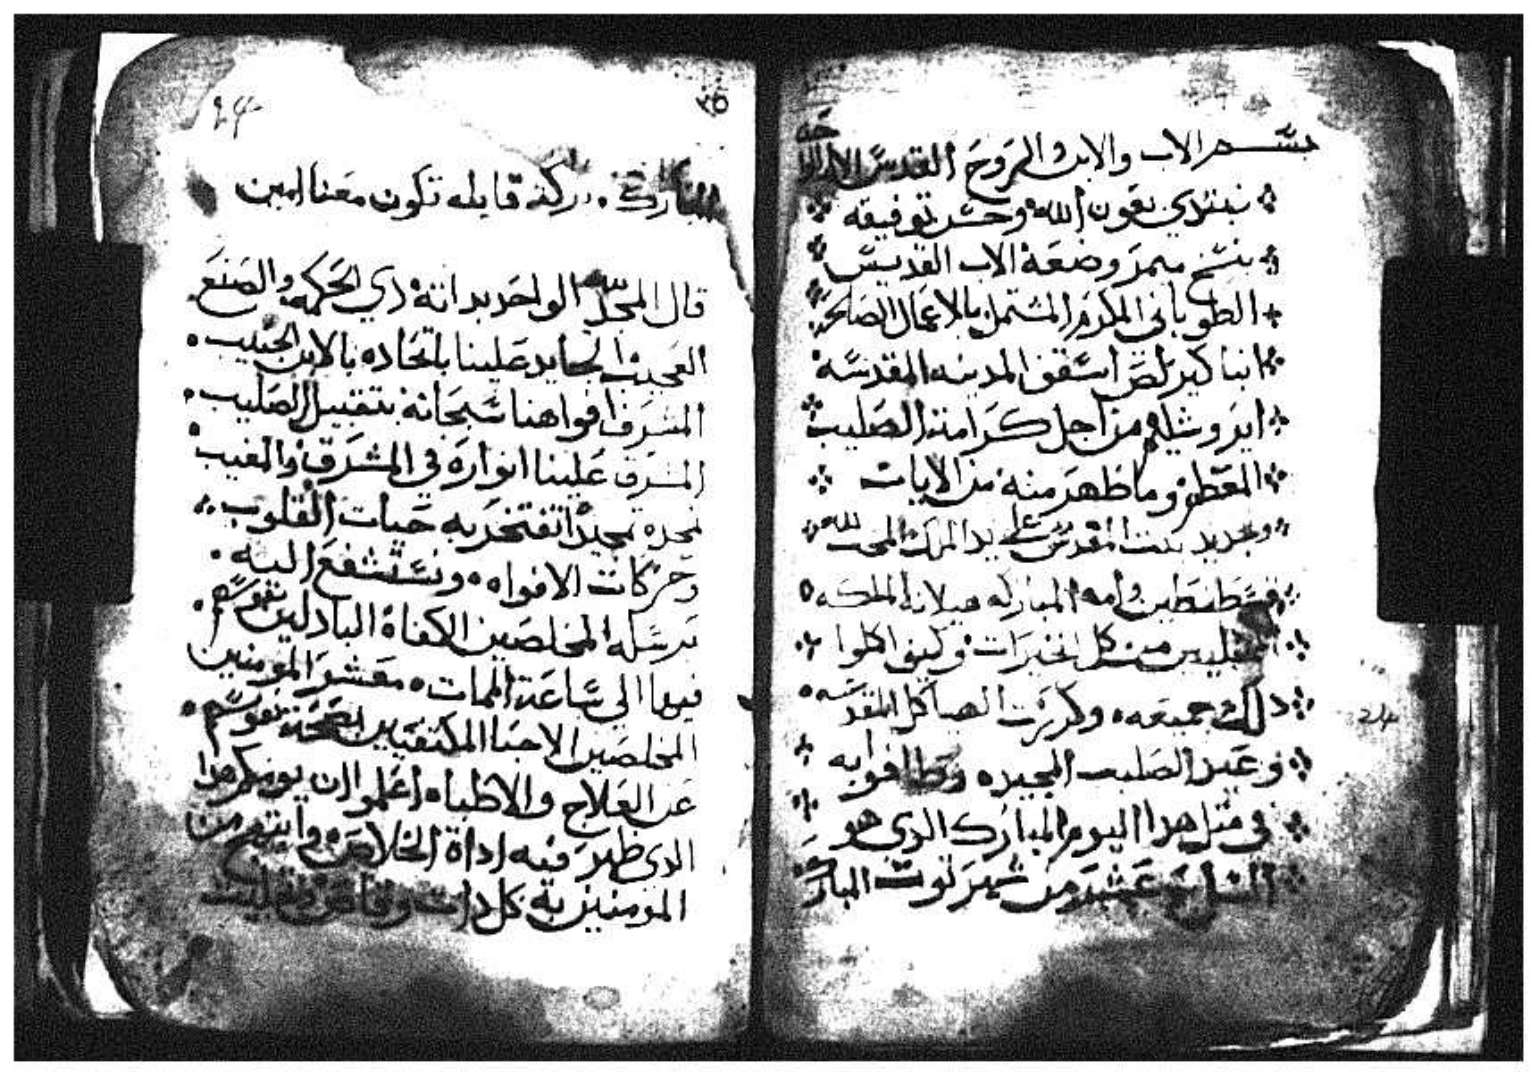 بسم الاب والابن والروح القدس الاه واحد
نبتدي بعون الله وحسن توفيقه
بنسخ ميمر وضعه الاب القديس
الطوباني المكرم المشتمل بالاعمال الصالحه
انبا كيرلص اسقف المدينه المقدسه
ايروشليم من اجل كرامة الصليب
المعظم وما ظهر منه من الايات
وتجديد بيت المقدس على يد الملك المحب لله
قسطنطين وامه المباركه هيلانه الملكه
من كل الخيرات وكيف اكلوا
دلك جميعه وكرزت الهياكل المقدسه
وعيد الصليب المجيده وطافوا به
في مثل هدا اليوم المبارك الدي هو
عشر من شهر توت المبارك
24
٢٤
المبارك بركته قايله تكون معنا امين
قال المجد لله الواحد بداته دي الحكمه والصنع
العجيب الجايد علينا باتحاده بالابن الحبيب
المشرف افواهنا سبحانه بتقبيل الصليب
المشرق علينا انواره في المشرق والمغيب
نمجده تمجيدا تفتخر به حيات القلوب
وحركات الافواه ونستشفع اليه
برسله المخلصين الكفاة البادلين نفوسهم
فيها الي ساعة الممات معشر المومنين
المخلصين الاحبا المكتفيين بصحة نفوسهم
عن العلاج والاطباء اعلموا ان يومكم هدا
الدي ظهر فيه اداة الخلاص وابتهج من
المومنين به كل